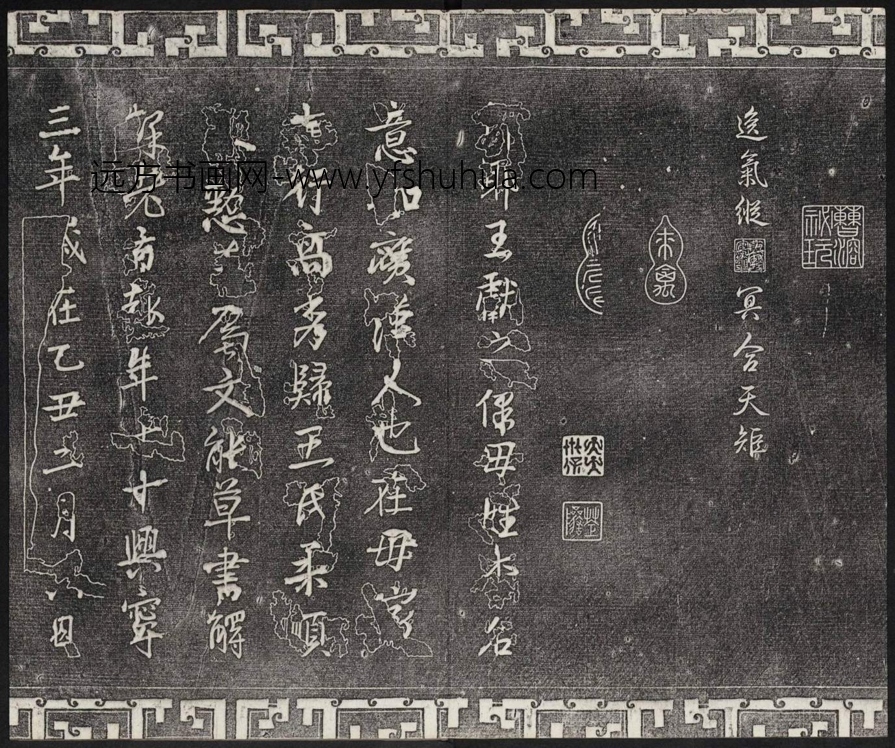 逸氣縱
冥合天矩
曹溶
秘玩
朱禽
琅耶王獻之保母姓李名
意如廣漢人也在母家
志行高秀歸王氏柔順
恭懃善屬文能草書解
釋老旨趣年七十興寧
三年歲在乙丑二月六日
远方书画网-www.yfshuhua.com